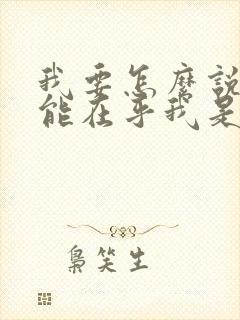 我要怎麽說
能在乎我是
梟笑生